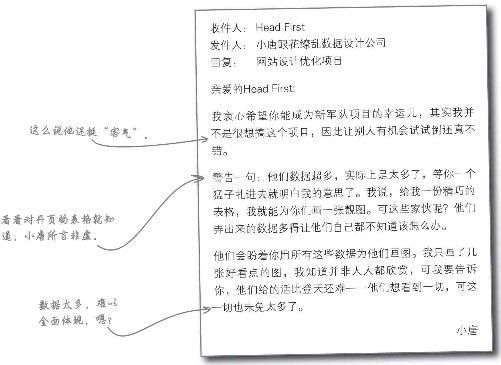 收件人： Head First
发件人： 小唐眼花缭乱数据设计公司
回复： 网站设计优化项目
亲爱的Head First:
我衷心希望你能成为新军队项目的幸运儿，其实我并
不是很想搞这个项目，因此让别人有机会试试倒还真不
错。
警告一句：他们数据超多，实际上是太多了，等你一个
猛子扎进去就明白我的意思了。我说，给我一份精巧的
表格，我就能为你们画一张靓图。可这些家伙呢？他们
弄出来的数据多得让他们自己都不知道该怎么办。
他们会盼着你用所有这些数据为他们画图。我只画了几
张好看点的图，我知道并非人人都欣赏，可我要告诉
你，他们给的活比登天还难——他们想看到一切，可这
一切也未免太多了。
小唐
这么说他还挺“客气”。
看看对开页的表格就知
道，小唐所言非虚。
数据太多，难以
全面体现，嗯？